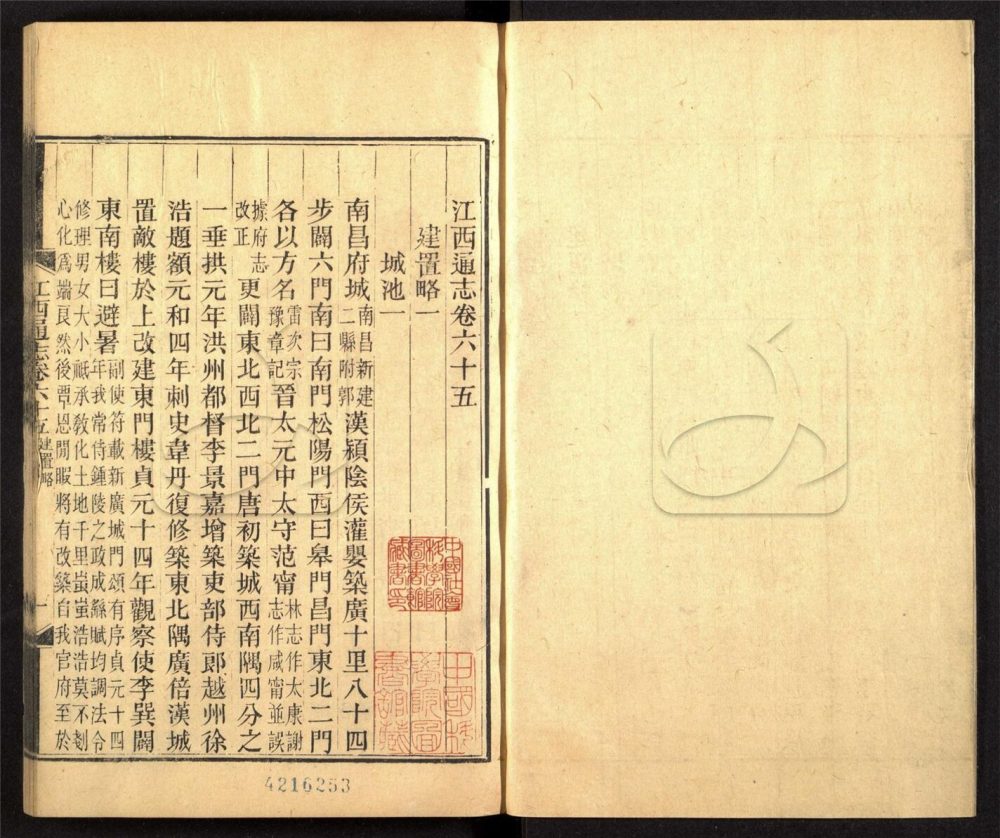 江西通志卷六十五
建置略一
城池一
南昌府城南昌新建二縣附郭漢潁陰侯灌嬰築廣十里八十四
步闢六門南曰南門松陽門西曰皋門昌門東北二門
各以方名雷次宗豫章記晉太元中太守范甯林志作太康謝志作咸甯並誤
據府志改正更闢東北西北二門唐初築城西南隅四分之
一垂拱元年洪州都督李景嘉增築吏部侍郎越州徐
浩題額元和四年刺史韋丹復修築東北隅廣倍漢城
置敵樓於上改建東門樓貞元十四年觀察使李巽闢
東南樓曰避暑副使符載新廣城門頌有序貞元十四年我常侍鍾陵之政成繇賦均調法令
修理男女大小祇承敎化土地千里蚩蚩浩浩莫不剗
心化爲端良然後覃恩閒暇將有改築自我官府至於
江西通志卷六十五 建置略 一
中國社會科學院圖書館藏書印
中國科學院圖書館藏
4216253